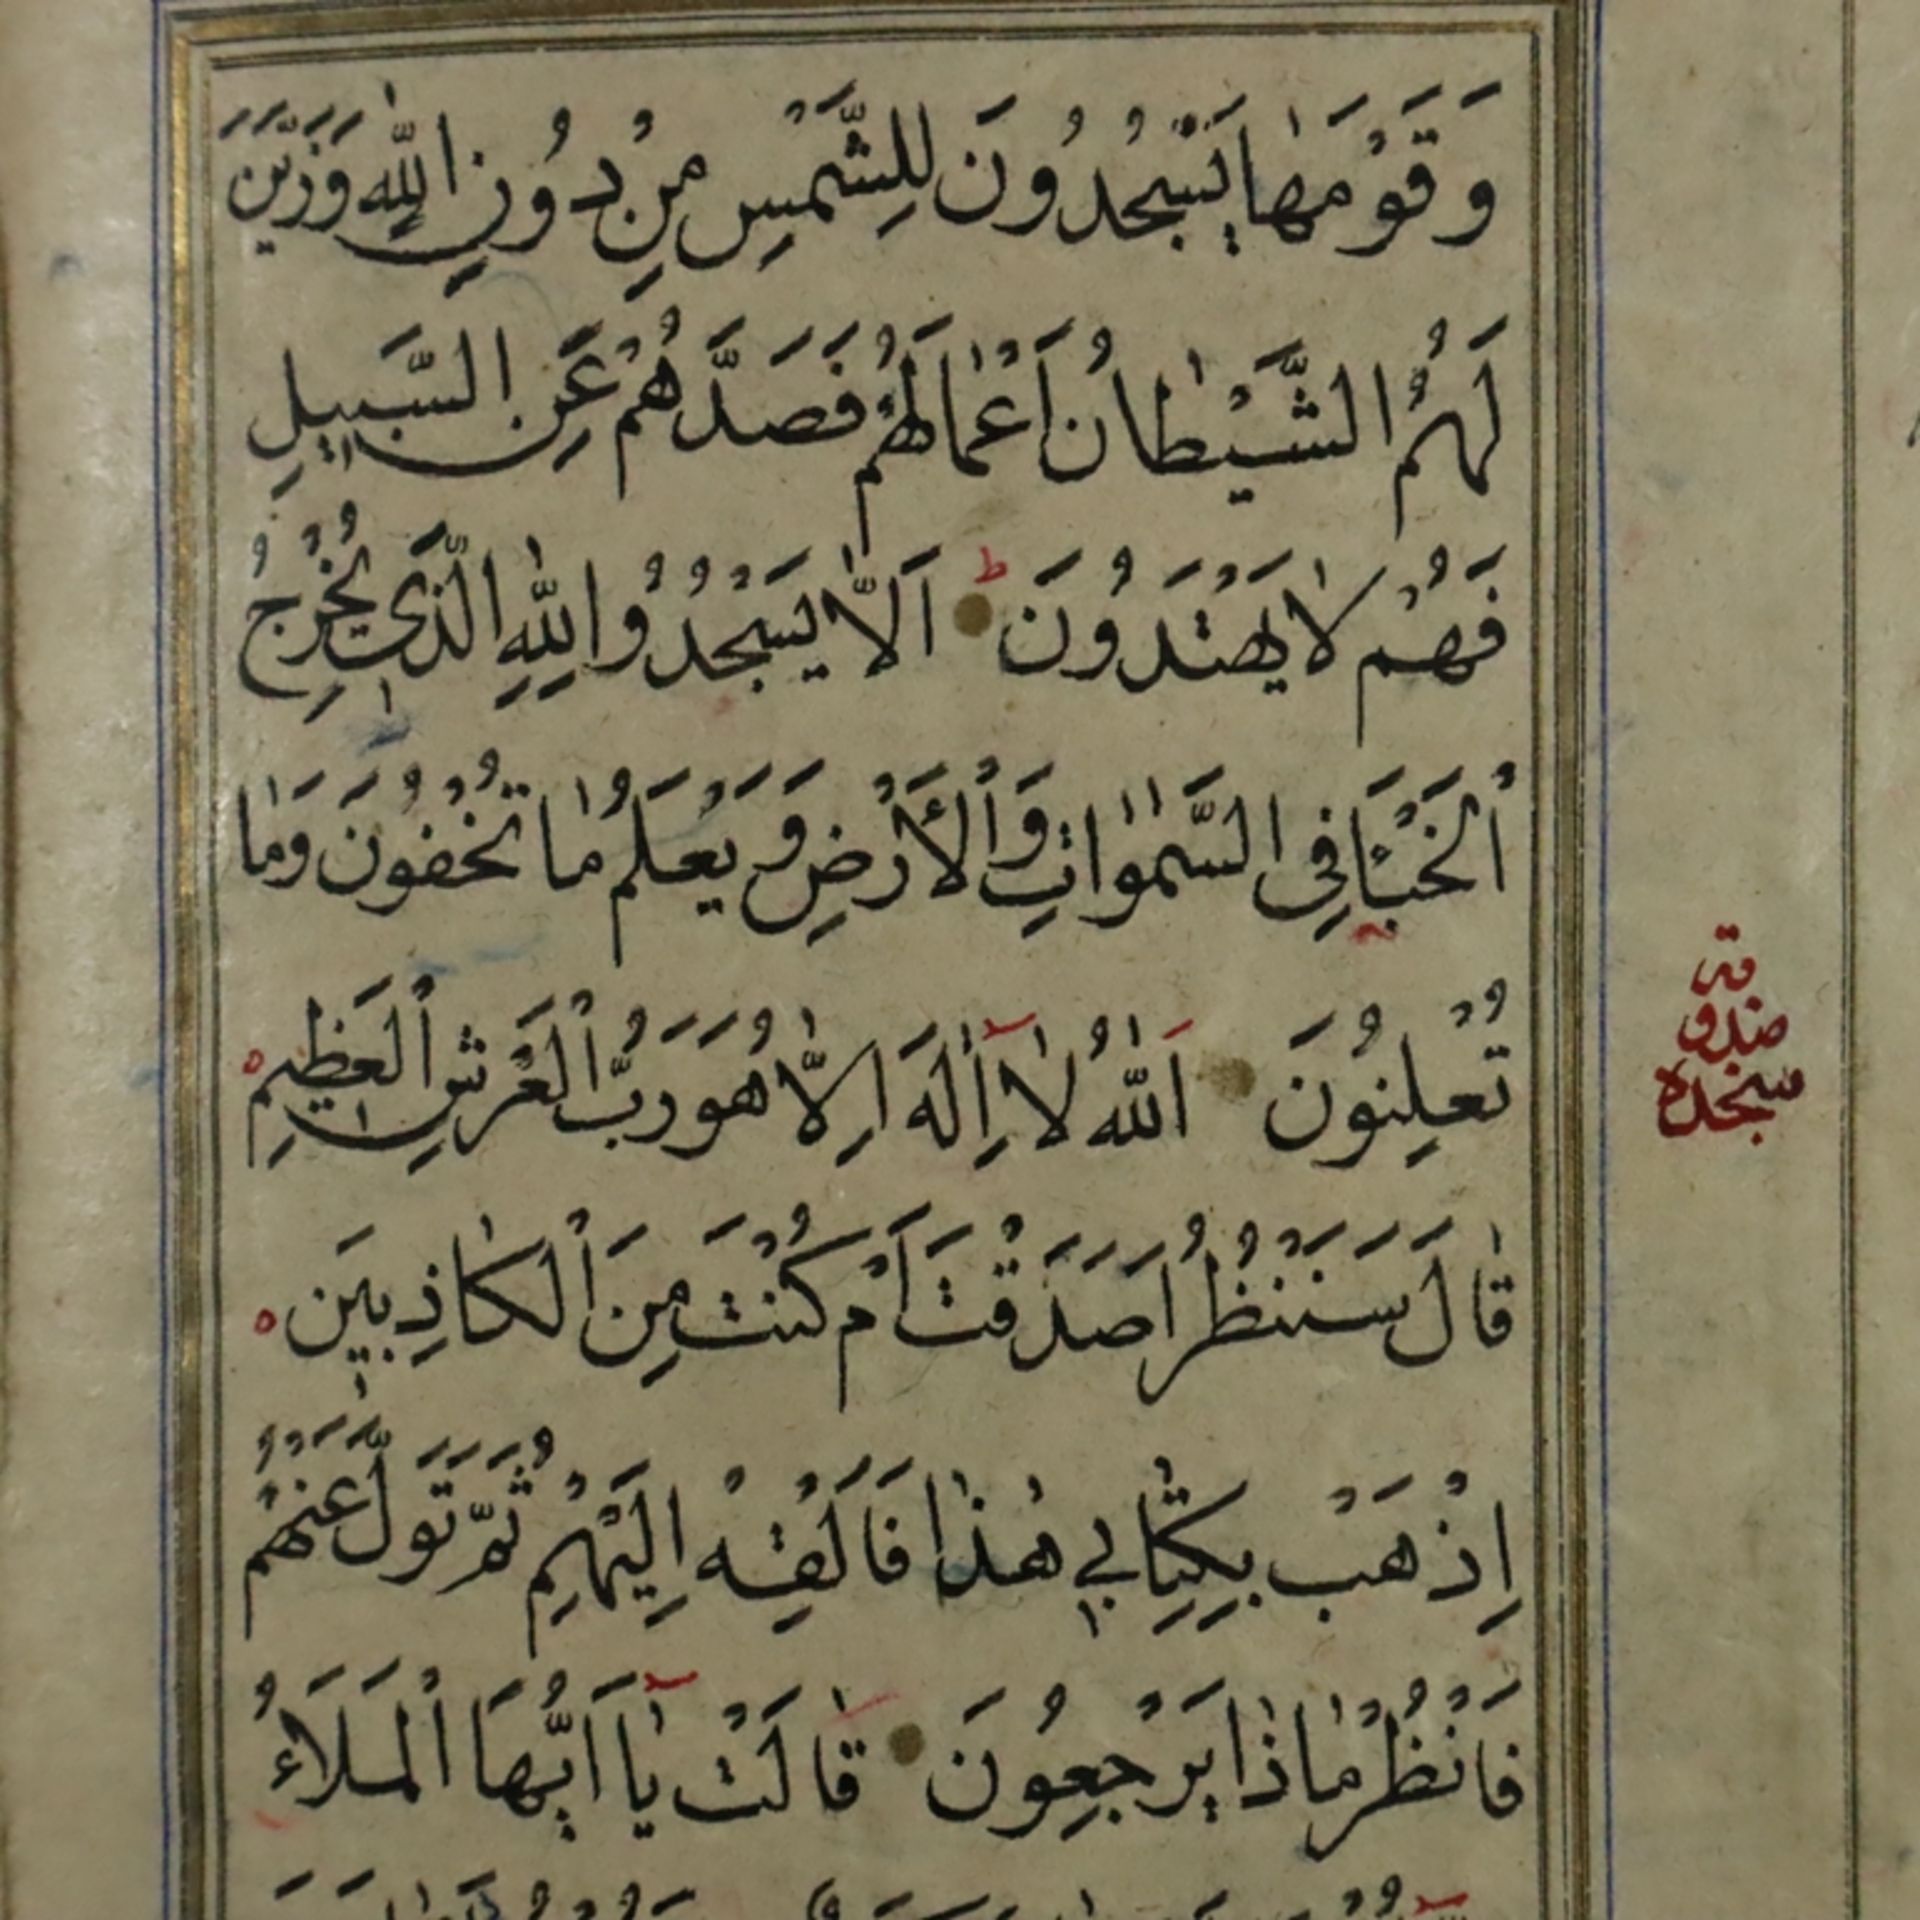 وَقَوْمَهٰا يَسْجُدُونَ لِلشَّمْسِ مِنْ دُونِ اللّٰهِ وَزَيَّنَ
لَهُمُ الشَّيْطٰانُ اَعْمٰالَهُمْ فَصَدَّهُمْ عَنِ السَّبِيلِ
فَهُمْ لٰا يَهْتَدُونَ ط اَلّٰا يَسْجُدُوا لِلّٰهِ الَّذِي يُخْرِجُ
ٱلْخَبْأَ فِي السَّمٰوٰاتِ وَٱلْأَرْضِ وَيَعْلَمُ مٰا تُخْفُونَ وَمٰا
تُعْلِنُونَ اَللّٰهُ لٰا اِلٰهَ اِلّٰا هُوَ رَبُّ ٱلْعَرْشِ ٱلْعَظِيمِ
سجده
قٰالَ سَنَنْظُرُ اَصَدَقْتَ اَمْ كُنْتَ مِنَ ٱلْكٰاذِبِينَ
اِذْهَبْ بِكِتٰابِي هٰذٰا فَاَلْقِهْ اِلَيْهِمْ ثُمَّ تَوَلَّ عَنْهُمْ
فَانْظُرْ مٰاذٰا يَرْجِعُونَ قٰالَتْ يٰا اَيُّهَا ٱلْمَلَاءُ